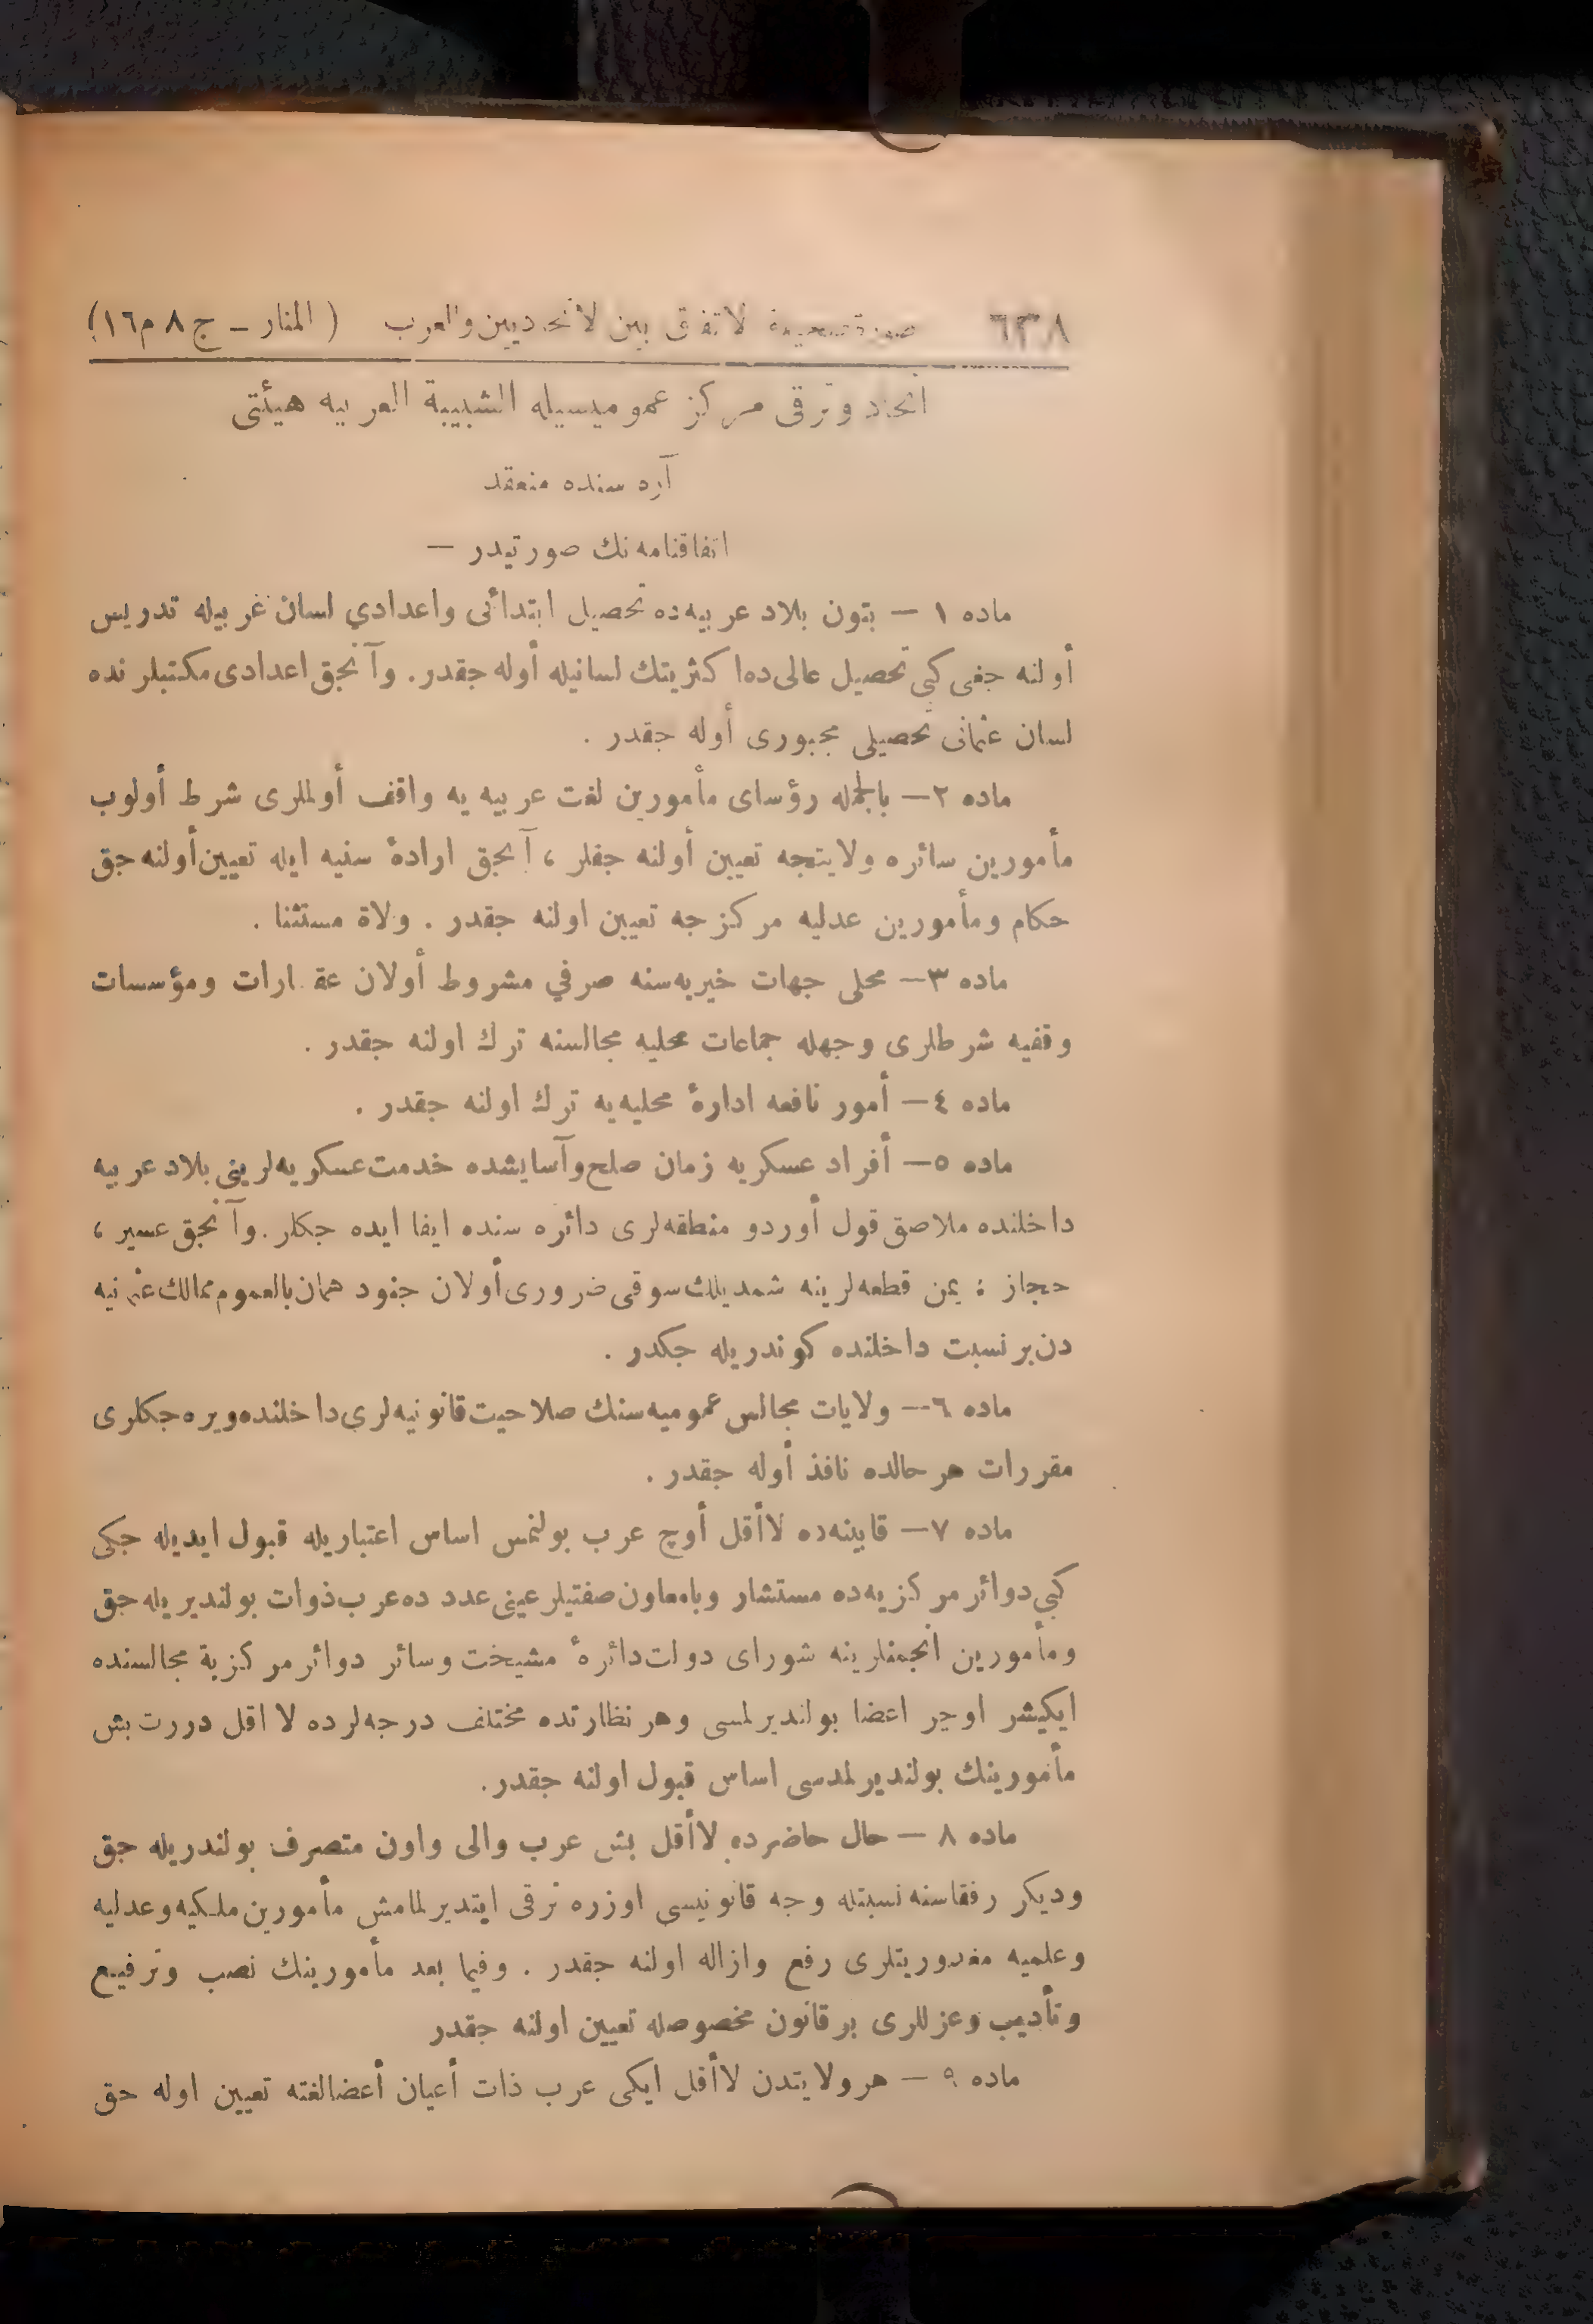 ٦٣٨ صورة صحيفة الاتفاق بين الاتحاديين والعرب ( المنار ــ ج ٨ م ١٦)
اتحاد وترقى مركز عموميسيله الشبيبة العربيه هيئتى
آره سنده منعقد
اتفاقنامه نك صورتيدر —
ماده ١ — بتون بلاد عربيه ده تحصيل ابتدائى واعدادي لسان عربيله تدريس
أولنه جغى كبى تحصيل عالى ده ا كثريتك لسانيله أوله جقدر. وآنجق اعدادى مكتبلرنده
لسان عثمانى تحصيلى مجبورى أوله جقدر .
ماده ٢— بالجمله رؤساى مأمورين لغت عربيه يه واقف أولملرى شرط أولوب
مأمورين سائره ولايتجه تعيين أولنه جقلر ، آنجق ارادهٔ سنيه ايله تعيين أولنه جق
حكام ومأمورين عدليه مركزجه تعيين اولنه جقدر . ولاة مستثنا .
ماده ٣— محلى جهات خيريه سنه صرفي مشروط أولان عقارات ومؤسسات
وقفيه شرطلرى وجهله جماعات محليه مجالسنه ترك اولنه جقدر .
ماده ٤— أمور نافعه ادارهٔ محليه يه ترك اولنه جقدر .
ماده ٥— أفراد عسكريه زمان صلح وآسايشده خدمت عسكريه لرينى بلاد عربيه
داخلنده ملاصق قول أوردو منطقه لرى دائره سنده ايفا ايده جكلر. وآنجق عسير ،
حجاز ؛ يمن قطعه لرينه شمديلك سوقى ضرورى أولان جنود همان بالعموم ممالك عثمانيه
دن بر نسبت داخلنده كوندريله جكدر .
ماده ٦— ولايات مجالس عموميه سنك صلاحيت قانونيه لرى داخلنده ويره جكلرى
مقررات هر حالده نافذ أوله جقدر .
ماده ٧— قابينه ده لاأقل أوچ عرب بولنمس اساس اعتباريله قبول ايديله جكى
كبي دوائر مركزيه ده مستشار وبامعاون صفتيلر عينى عدد ده عرب ذوات بولنديريله جق
ومأمورين انجمنلرينه شوراى دولت دائرهٔ مشيخت وسائر دوائر مركزية مجالسنده
ايكيشر اوچر اعضا بولنديرلمسى وهر نظارتده مختلف درجه لرده لا اقل دررت بش
مأمورينك بولنديرلمدسى اساس قبول اولنه جقدر.
ماده ٨ — حال حاضرده لاأقل بش عرب والى واون متصرف بولندريله جق
وديكر رفقاسنه نسبتله وجه قانونيسى اوزره ترقى ايتديرلمامش مأمورين ملكيه وعدليه
وعلميه مغدوريتلرى رفع وازاله اولنه جقدر . وفيما بعد مأمورينك نصب وترفيع
وتأديب وعزللرى بر قانون مخصوصله تعيين اولنه جقدر
ماده ٩ — هر ولايتدن لاأقل ايكى عرب ذات أعيان أعضالغته تعيين اوله حق